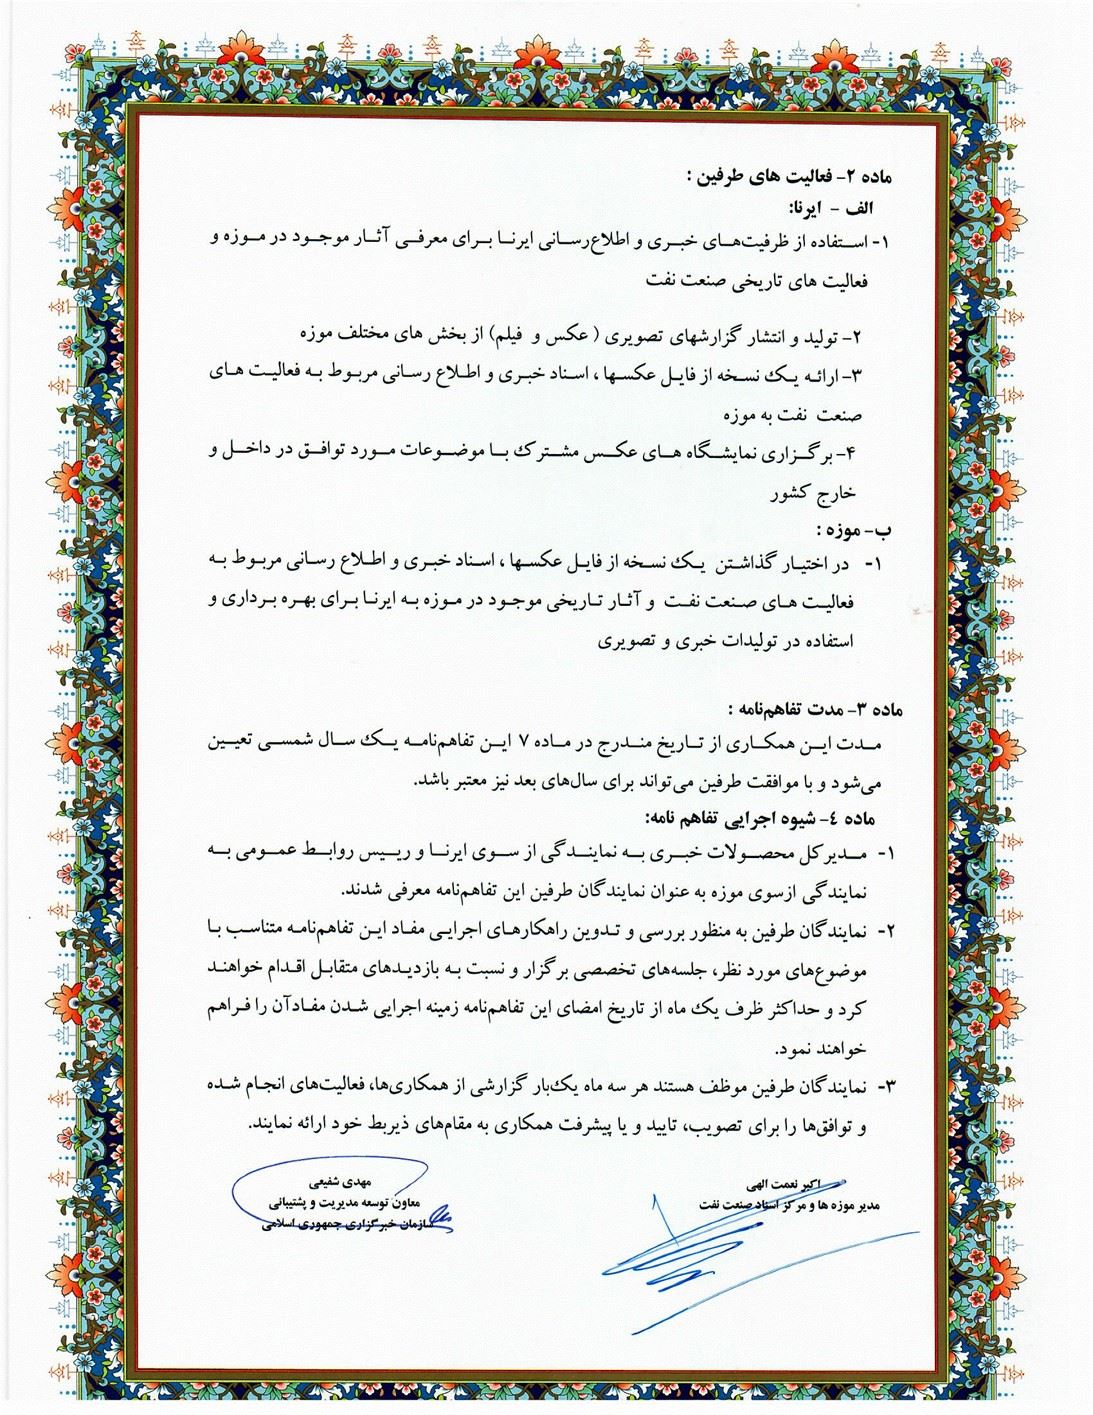 ماده ۲- فعالیت های طرفین :
الف - ایرنا:
۱- استفاده از ظرفیت‌های خبری و اطلاع‌رسانی ایرنا برای معرفی آثار موجود در موزه و
فعالیت های تاریخی صنعت نفت
۲- تولید و انتشار گزارشهای تصویری ( عکس و فیلم) از بخش های مختلف موزه
۳- ارائه یک نسخه از فایل عکسها ، اسناد خبری و اطلاع رسانی مربوط به فعالیت های
صنعت نفت به موزه
۴- برگزاری نمایشگاه های عکس مشترک با موضوعات مورد توافق در داخل و
خارج کشور
ب- موزه :
۱- در اختیار گذاشتن یک نسخه از فایل عکسها ، اسناد خبری و اطلاع رسانی مربوط به
فعالیت های صنعت نفت و آثار تاریخی موجود در موزه به ایرنا برای بهره برداری و
استفاده در تولیدات خبری و تصویری
ماده ۳- مدت تفاهم‌نامه :
مدت این همکاری از تاریخ مندرج در ماده ۷ این تفاهم‌نامه یک سال شمسی تعیین
می‌شود و با موافقت طرفین می‌تواند برای سال‌های بعد نیز معتبر باشد.
ماده ٤- شیوه اجرایی تفاهم نامه:
۱- مدیرکل محصولات خبری به نمایندگی از سوی ایرنا و رییس روابط عمومی به
نمایندگی ازسوی موزه به عنوان نمایندگان طرفین این تفاهم‌نامه معرفی شدند.
۲- نمایندگان طرفین به منظور بررسی و تدوین راهکارهای اجرایی مفاد این تفاهم‌نامه متناسب با
موضوع‌های مورد نظر، جلسه‌های تخصصی برگزار و نسبت به بازدیدهای متقابل اقدام خواهند
کرد و حداکثر ظرف یک ماه از تاریخ امضای این تفاهم‌نامه زمینه اجرایی شدن مفادآن را فراهم
خواهند نمود.
۳- نمایندگان طرفین موظف هستند هر سه ماه یک‌بار گزارشی از همکاری‌ها، فعالیت‌های انجام شده
و توافق‌ها را برای تصویب، تایید و یا پیشرفت همکاری به مقام‌های ذیربط خود ارائه نمایند.
اکبر نعمت الهی
مدیر موزه ها و مرکز اسناد صنعت نفت
مهدی شفیعی
معاون توسعه مدیریت و پشتیبانی
سازمان خبرگزاری جمهوری اسلامی